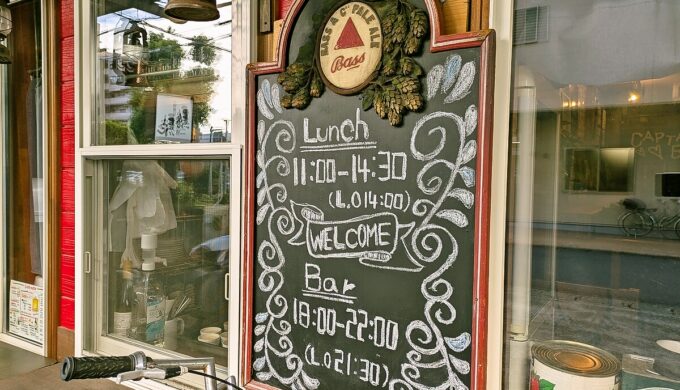 BASS & Co PALE ALE
Bass
Lunch
11:00-14:30
(L.O 14:00)
WELCOME
Bar
18:00-22:00
(L.O 21:30)